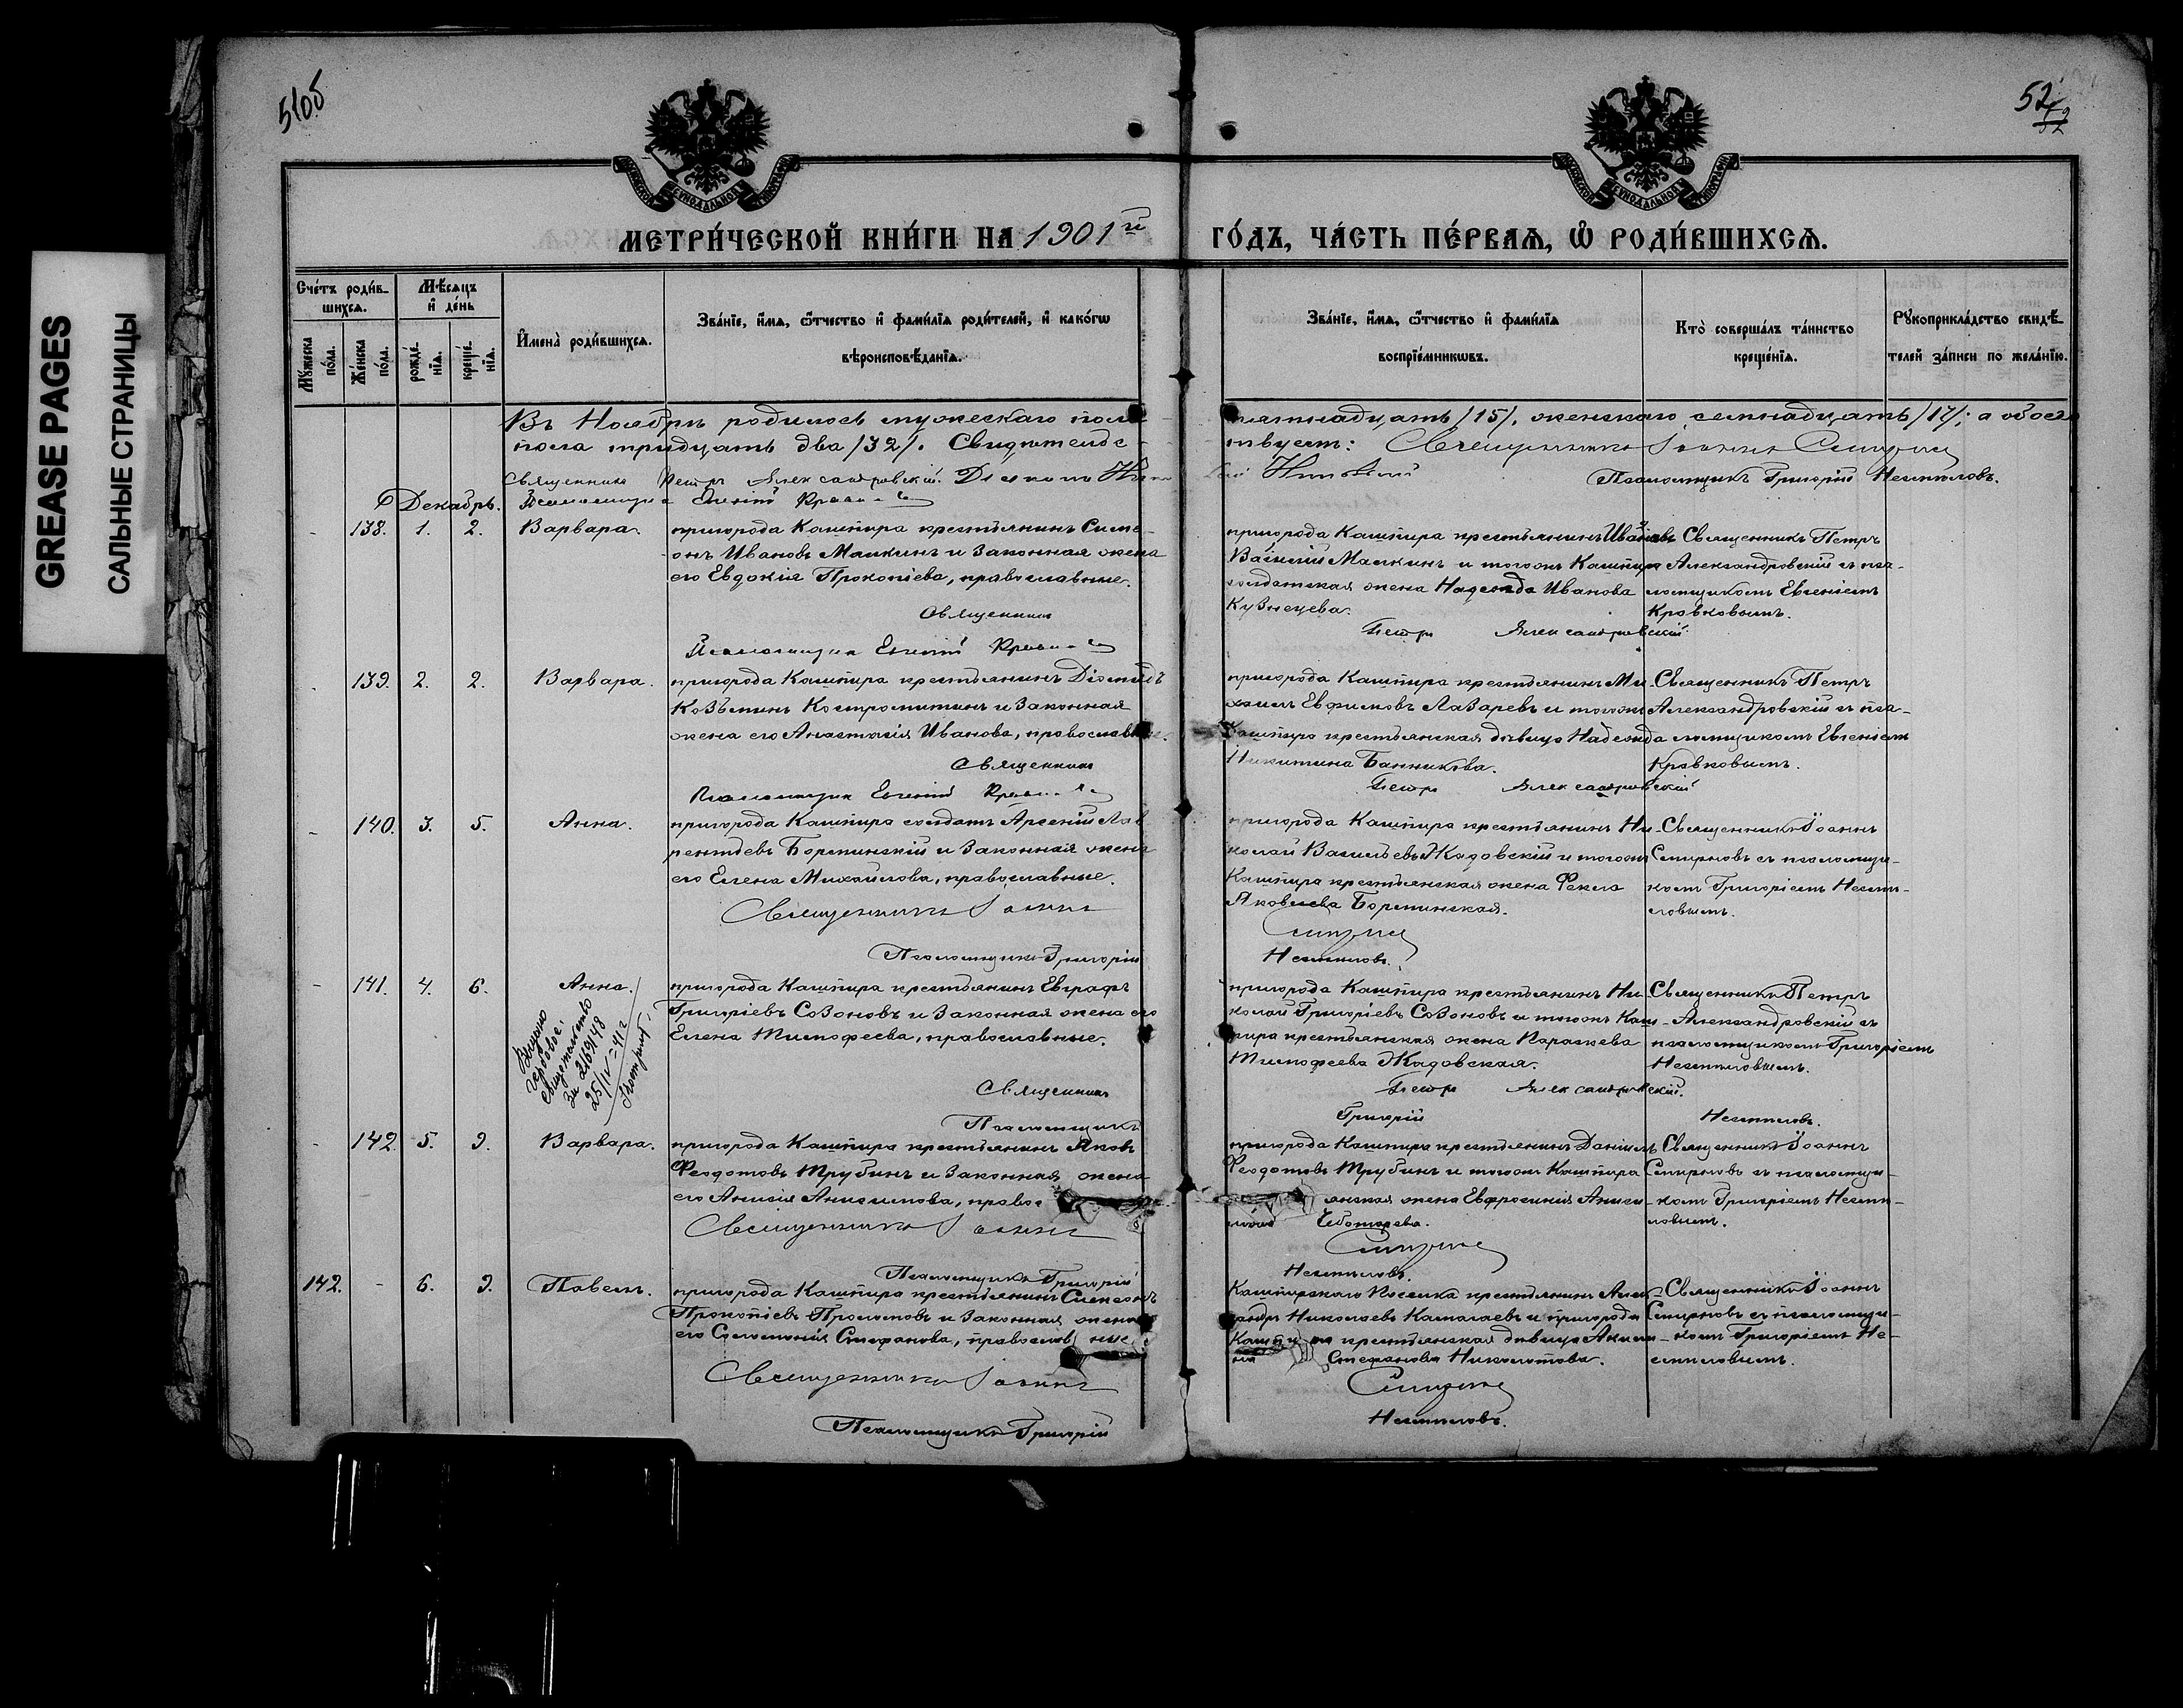 GREASE PAGES
САЛЬНЫЕ СТРАНИЦЫ
51об
52
52
МЕТРИ́ЧЕСКОЙ КНИ́ГИ НА 1901й
ГО́ДЪ, ЧА́СТЬ ПЕ́РВАЯ, Ѡ РОДИ́ВШИХСЯ.
Сче́тъ роди́в-
шихся.
Мѣ́сяцъ
и де́нь
Мꙋ́жеска по́ла.
Же́нска по́ла.
рожде́нїя.
креще́нїя.
Имена̀ роди́вшихся.
Зва́нїе, и́мя, ѻ́тчество и фами́лїя роди́телей, и како́гѡ
вѣроисповѣ́данїя.
Зва́нїе, и́мя, ѻ́тчество и фами́лїя
воспрїе́мникѡвъ.
Кто̀ соверша́лъ та́инство
креще́нїя.
Рꙋкоприкла́дство свидѣ́-
телей за́писи по жела́нїю.
Въ Ноябрѣ родилось мужескаго пола пятнадцать /15/, женскаго семнадцать /17/; а обоего
пола тридцать два /32/. Свидѣтельс-
твуетъ: Священникъ Іоаннъ Смирнов
Священникъ Петръ Александровскій. Діаконъ
Псаломщикъ Григорій Несмѣловъ.
Псаломщикъ Евгеній
Декабрь.
138. 1. 2. Варвара.
пригорода Кашпира крестьянинъ Симе-
онъ Ивановъ Малкинъ и законная жена
его Евдокія Прокопіева, православные.
пригорода Кашпира крестьянинъ Ивановъ
Василій Малкинъ и тогожъ Кашпира
солдатская жена Надежда Иванова
Кузнецева.
Священникъ Петръ
Александровскій съ пса-
ломщикомъ Евгеніемъ
Кравковымъ.
Священникъ Петръ Александровскій
Псаломщикъ Евгеній
139. 2. 2. Варвара.
пригорода Кашпира крестьянинъ Діомидъ
Козьминъ Костромитинъ и законная
жена его Анастасія Иванова, православные.
пригорода Кашпира крестьянинъ Ми-
хаилъ Евфимовъ Лазаревъ и тогожъ
Кашпира крестьянская дѣвица Надежда
Никитина Банникова.
Священникъ Петръ
Александровскій съ пса-
ломщикомъ Евгеніемъ
Кравковымъ.
Священникъ Петръ Александровскій
Псаломщикъ Евгеній
140. 3. 5. Анна.
пригорода Кашпира солдатъ Арсеній Лав-
рентьевъ Борминскій и законная жена
его Елена Михайлова, православные.
пригорода Кашпира крестьянинъ Ни-
колай Васильевъ Жадовскій и тогожъ
Кашпира крестьянская жена Фекла
Яковлева Борминская.
Священникъ Іоаннъ
Смирновъ съ псаломщи-
комъ Григоріемъ Несмѣ-
ловымъ.
Священникъ Іоаннъ Смирнов
Псаломщикъ Григорій Несмѣловъ.
141. 4. 6. Анна.
Выдано
гербовое
свидетельство
за 2169148
25/IV-41г
пригорода Кашпира крестьянинъ Евграфъ
Григоріевъ Созоновъ и законная жена его
Елена Тимофеева, православные.
пригорода Кашпира крестьянинъ Ни-
колай Григоріевъ Созоновъ и тогожъ Каш-
пира крестьянская жена Параскева
Тимофеева Жадовская.
Священникъ Петръ
Александровскій съ
псаломщикомъ Григоріемъ
Несмѣловымъ.
Священникъ Петръ Александровскій.
Псаломщикъ Григорій Несмѣловъ.
142. 5. 9. Варвара.
пригорода Кашпира крестьянинъ Яковъ
Феодотовъ Трубинъ и законная жена
его Анисія Анисимова, правос
пригорода Кашпира крестьянинъ Даніилъ
Феодотовъ Трубинъ и тогожъ Кашпира
янская жена Евфросинія Аниси-
мова Чеботарева.
Священникъ Іоаннъ
Смирновъ съ псаломщи-
комъ Григоріемъ Несмѣ-
ловымъ.
Священникъ Іоаннъ Смирнов
Псаломщикъ Григорій Несмѣловъ.
142. - 6. 9. Павелъ.
пригорода Кашпира крестьянинъ Симеонъ
Прокопіевъ Проломовъ и законная жена
его Соломонія Стефанова, православные
Кашпирскаго Поселка крестьянинъ Алек-
сандръ Николаевъ Камалаевъ и пригорода
Кашпира крестьянская дѣвица
Стефанова Николотова.
Священникъ Іоаннъ
Смирновъ съ псаломщи-
комъ Григоріемъ Не-
смѣловымъ.
Священникъ Іоаннъ Смирнов
Псаломщикъ Григорій Несмѣловъ.